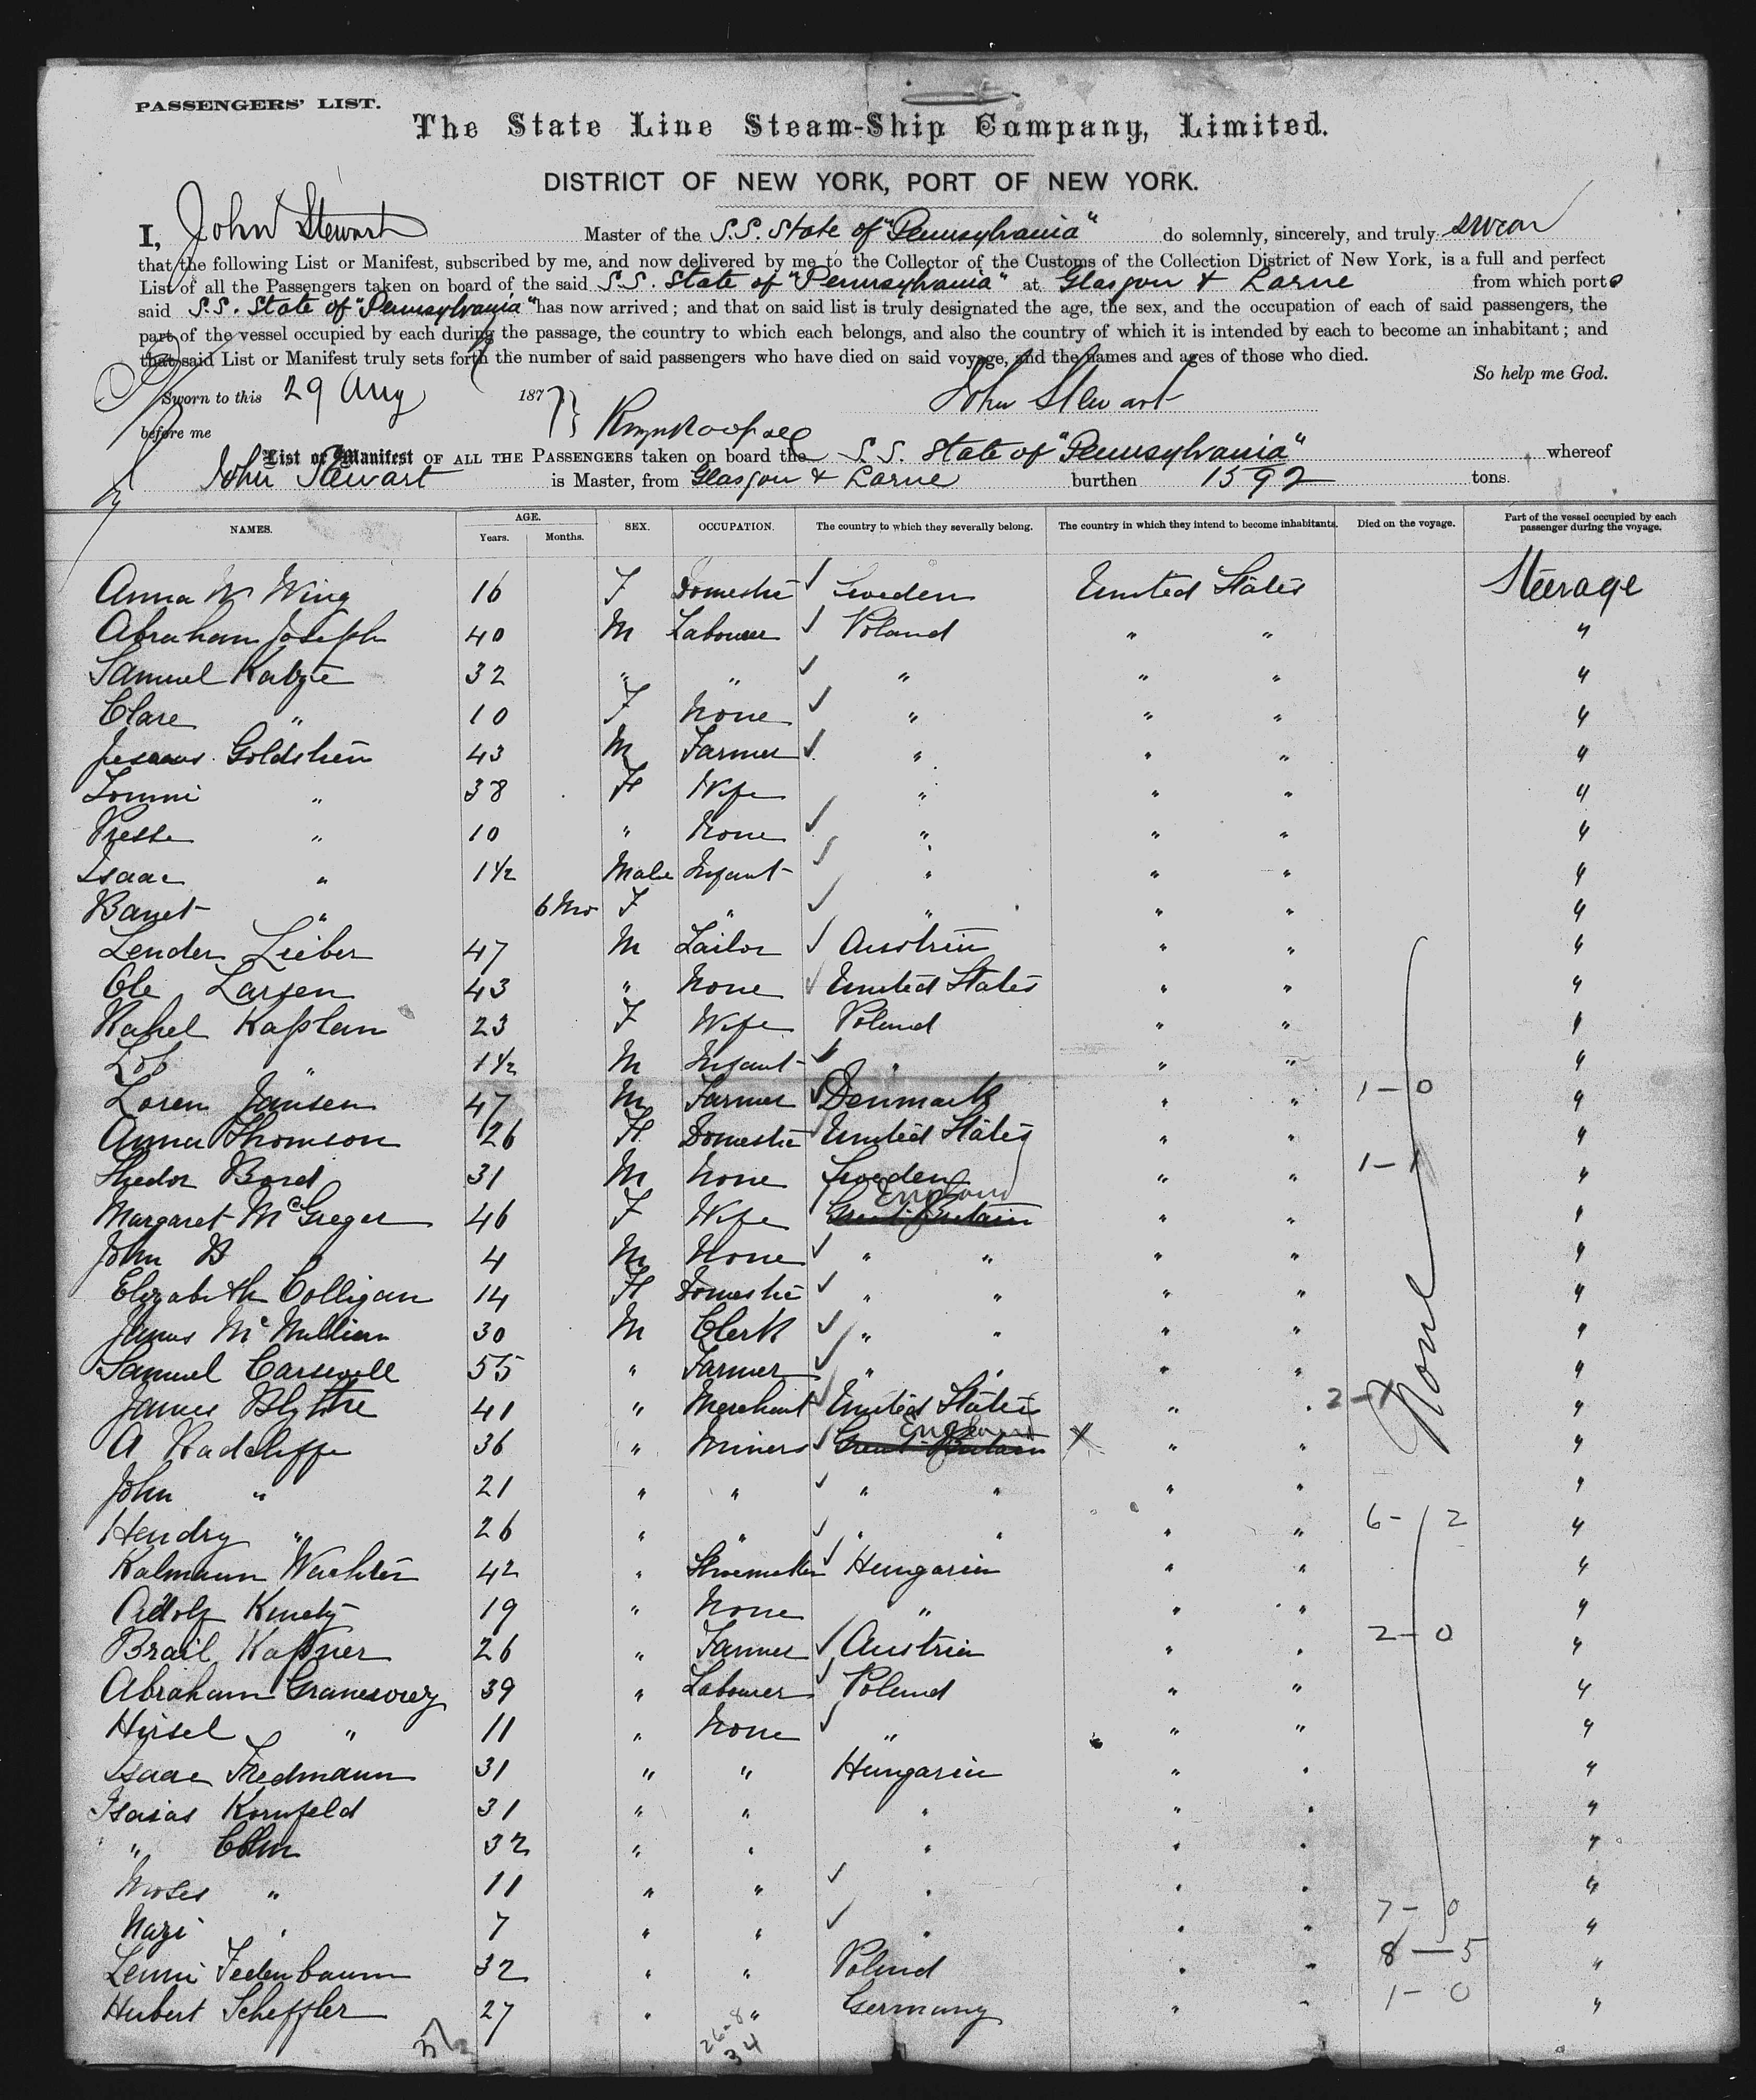 PASSENGERS' LIST.
The State Line Steam-Ship Company, Limited.
DISTRICT OF NEW YORK, PORT OF NEW YORK.
I, John Stewart Master of the S.S. State of "Pennsylvania" do solemnly, sincerely, and truly swear
that the following List or Manifest, subscribed by me, and now delivered by me to the Collector of the Customs of the Collection District of New York, is a full and perfect
List of all the Passengers taken on board of the said S.S. State of "Pennsylvania" at Glasgow & Larne from which ports
said S.S. State of "Pennsylvania" has now arrived; and that on said list is truly designated the age, the sex, and the occupation of each of said passengers, the
part of the vessel occupied by each during the passage, the country to which each belongs, and also the country of which it is intended by each to become an inhabitant; and
that said List or Manifest truly sets forth the number of said passengers who have died on said voyage, and the names and ages of those who died.
So help me God.
Sworn to this 29 Aug 1877 John Stewart
before me
List or Manifest OF ALL THE PASSENGERS taken on board the S.S. State of "Pennsylvania" whereof
John Stewart is Master, from Glasgow & Larne burthen 1592 tons.
NAMES. AGE. Years. Months. SEX. OCCUPATION. The country to which they severally belong. The country in which they intend to become inhabitants. Died on the voyage. Part of the vessel occupied by each passenger during the voyage.
Anna W Wing 16 F Domestic ✓ Sweden United States Steerage
Abraham Joseph 40 M Labourer ✓ Poland " " "
Samuel 32 " " ✓ " " " "
Clare " 10 F None ✓ " " " "
Goldstien 43 M Farmer ✓ " " " "
" 38 F Wife " " " "
" 10 " None ✓ " " " "
Isaac " 1½ Male Infant ✓ " " " "
Banet " 6 Mos F " ✓ " " " "
Lender Lieber 47 M Tailor ✓ Austria " " "
Ole Larsen 43 " None ✓ United States " " "
Rahel Kaplan 23 F Wife Poland " " "
" 1½ M Infant ✓ " " " "
Loren Jansen 47 M Farmer ✓ Denmark " " 1-0 "
Anna Thomson 26 F Domestic ✓ United States " " "
Thedor Bord 31 M None Sweden " " 1-1 "
Margaret McGreger 46 F Wife Great Britain England " " "
John B " 4 M None ✓ " " " " "
Elizabeth Colligan 14 F Domestic ✓ " " " " "
James McMillian 30 M Clerk ✓ " " " " "
Samuel Carswell 55 " Farmer ✓ " " " " "
James Blythe 41 " Merchant ✓ United States " " None "
A Radcliffe 36 " Miners ✓ Great Britain England X " " "
John " 21 " " ✓ " " " " "
Hendry " 26 " " ✓ " " " " 6-2 "
Kalmann Wachter 42 " Shoemaker ✓ Hungarien " " "
Adolf 19 " None " " " "
Brail Kapner 26 " Farmer ✓ Austria " " 2-0 "
Abraham 39 " Labourer ✓ Poland " " "
Hirsel " 11 " None ✓ " " " "
Isaac Fredmann 31 " " Hungarien " " "
Isaias Kornfeld 31 " " " " " "
" 32 " " " " " "
Moses " 11 " " ✓ " " " "
Nazi " 7 " " ✓ " " " 7-0 "
Lenni Fedenbaum 32 " " Polend " " 8-5 "
Hubert Scheffler 27 " " Germany " " 1-0 "
26-8
34